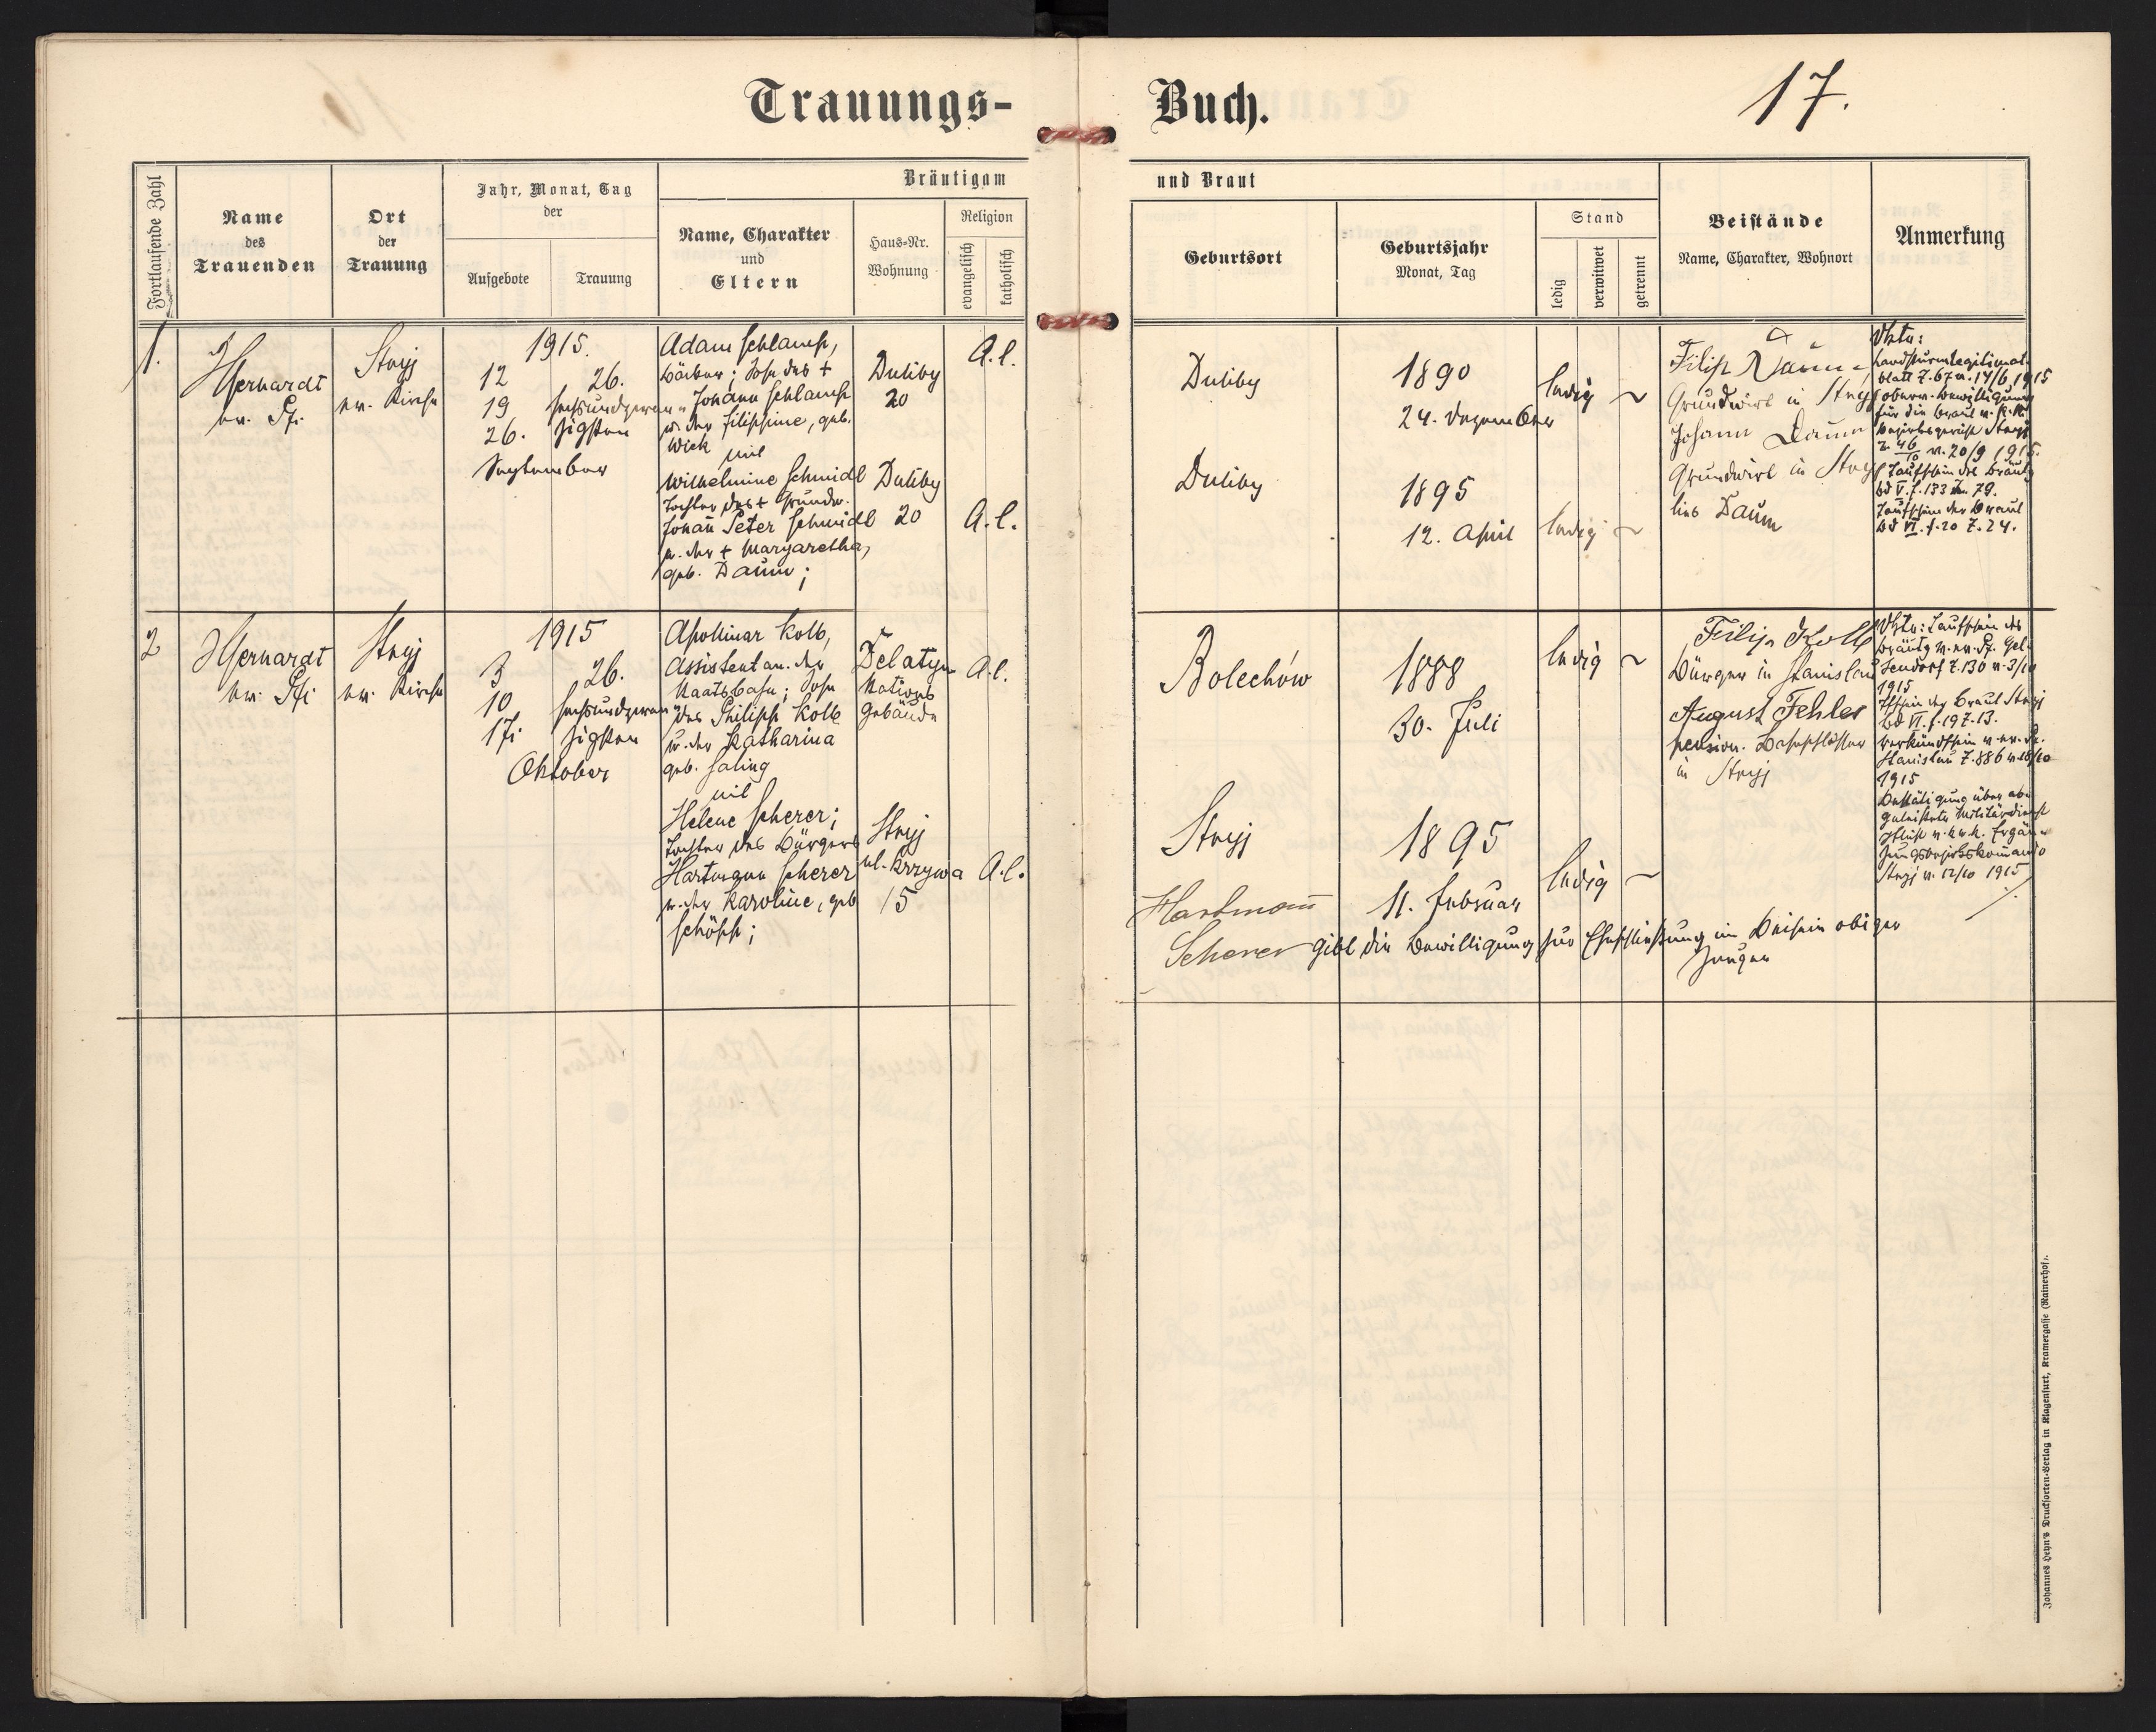 Trauungs-
Buch.
17.
Fortlaufende Zahl
Name
des
Trauenden
Ort
der
Trauung
Jahr, Monat, Tag
der
Aufgebote
Trauung
Bräutigam
Name, Charakter
und
Eltern
Haus-Nr.
Wohnung
Religion
evangelisch
katholisch
und Braut
Geburtsort
Geburtsjahr
Monat, Tag
Stand
ledig
verwitwet
getrennt
Beistände
Name, Charakter, Wohnort
Anmerkung
1.
ev. Pfr.
Stryj
ev. Kirche
1915.
12
19
26.
26.
sechsundzwan-
zigsten
September
Adam Schlamp,
Bäcker; Sohn des +
Johann Schlamp
u. der Filippine, geb.
Wick
mit
Wilhelmine Schmidt
Tochter des + Grundw.
Johann Peter Schmidt
u. der + Margaretha,
geb. Daum;
Duliby
20
Duliby
20
A.C.
A.C.
Duliby
1890
24. Dezember
ledig
Duliby
1895
12. April
ledig
Filip Daum
Grundwirt in Stryj
Johann Daum
Grundwirt in Stryj
Daum
Landsturmlegitimat.
blatt Z. 67 v. 14/6 1915
oberv. Bewilligung
für die Braut v. k.k.
Bezirksgericht Stryj
v. 20/9 1915.
Taufschein des Bräutg
bd V. f. 133 Z. 79.
Taufschein der Braut
bd VI. f. 20 Z. 24.
2
ev. Pfr.
Stryj
ev. Kirche
1915
3
10
17.
26.
sechsundzwan-
zigsten
Oktober
Apolinar Kolb,
Assistent an. der
Staatsbahn; Sohn
des Philipp Kolb
u. der Katharina
geb. Saling
mit
Helene Scherer;
Tochter des Bürgers
Hartmann Scherer
u. der Karoline, geb
Schöpp;
Delatyn
Stations
Gebäude
Stryj
ul. Krzywa
15
A.C.
A.C.
Bolechów
1888
30. Juli
ledig
Stryj
1895
11. Februar
ledig
Filip Kolb
Bürger in Stanislau
August Fehler
pension. Bahnschlosser
in Stryj
Taufschein des
Bräutg v. ev. Pf. Gel-
sendorf Z. 130 v. 3/10
1915
Tfschein der Braut Stryj
bd VI. f. 19 Z. 13.
Verkündschein v. ev. Pf.
Stanislau Z. 886 v. 18/10
1915
Bestätigung über ab-
geleistete Militärdienst
pflicht v. k.u.k. Ergän-
zungsbezirkskommando
Stryj v. 12/10 1915
Hartmann
Scherer gibt die Bewilligung zur Eheschließung im Beisein obiger
Zeugen
Johannes Heyn's Drucksorten-Verlag in Klagenfurt, Kramergasse (Rainerhof).